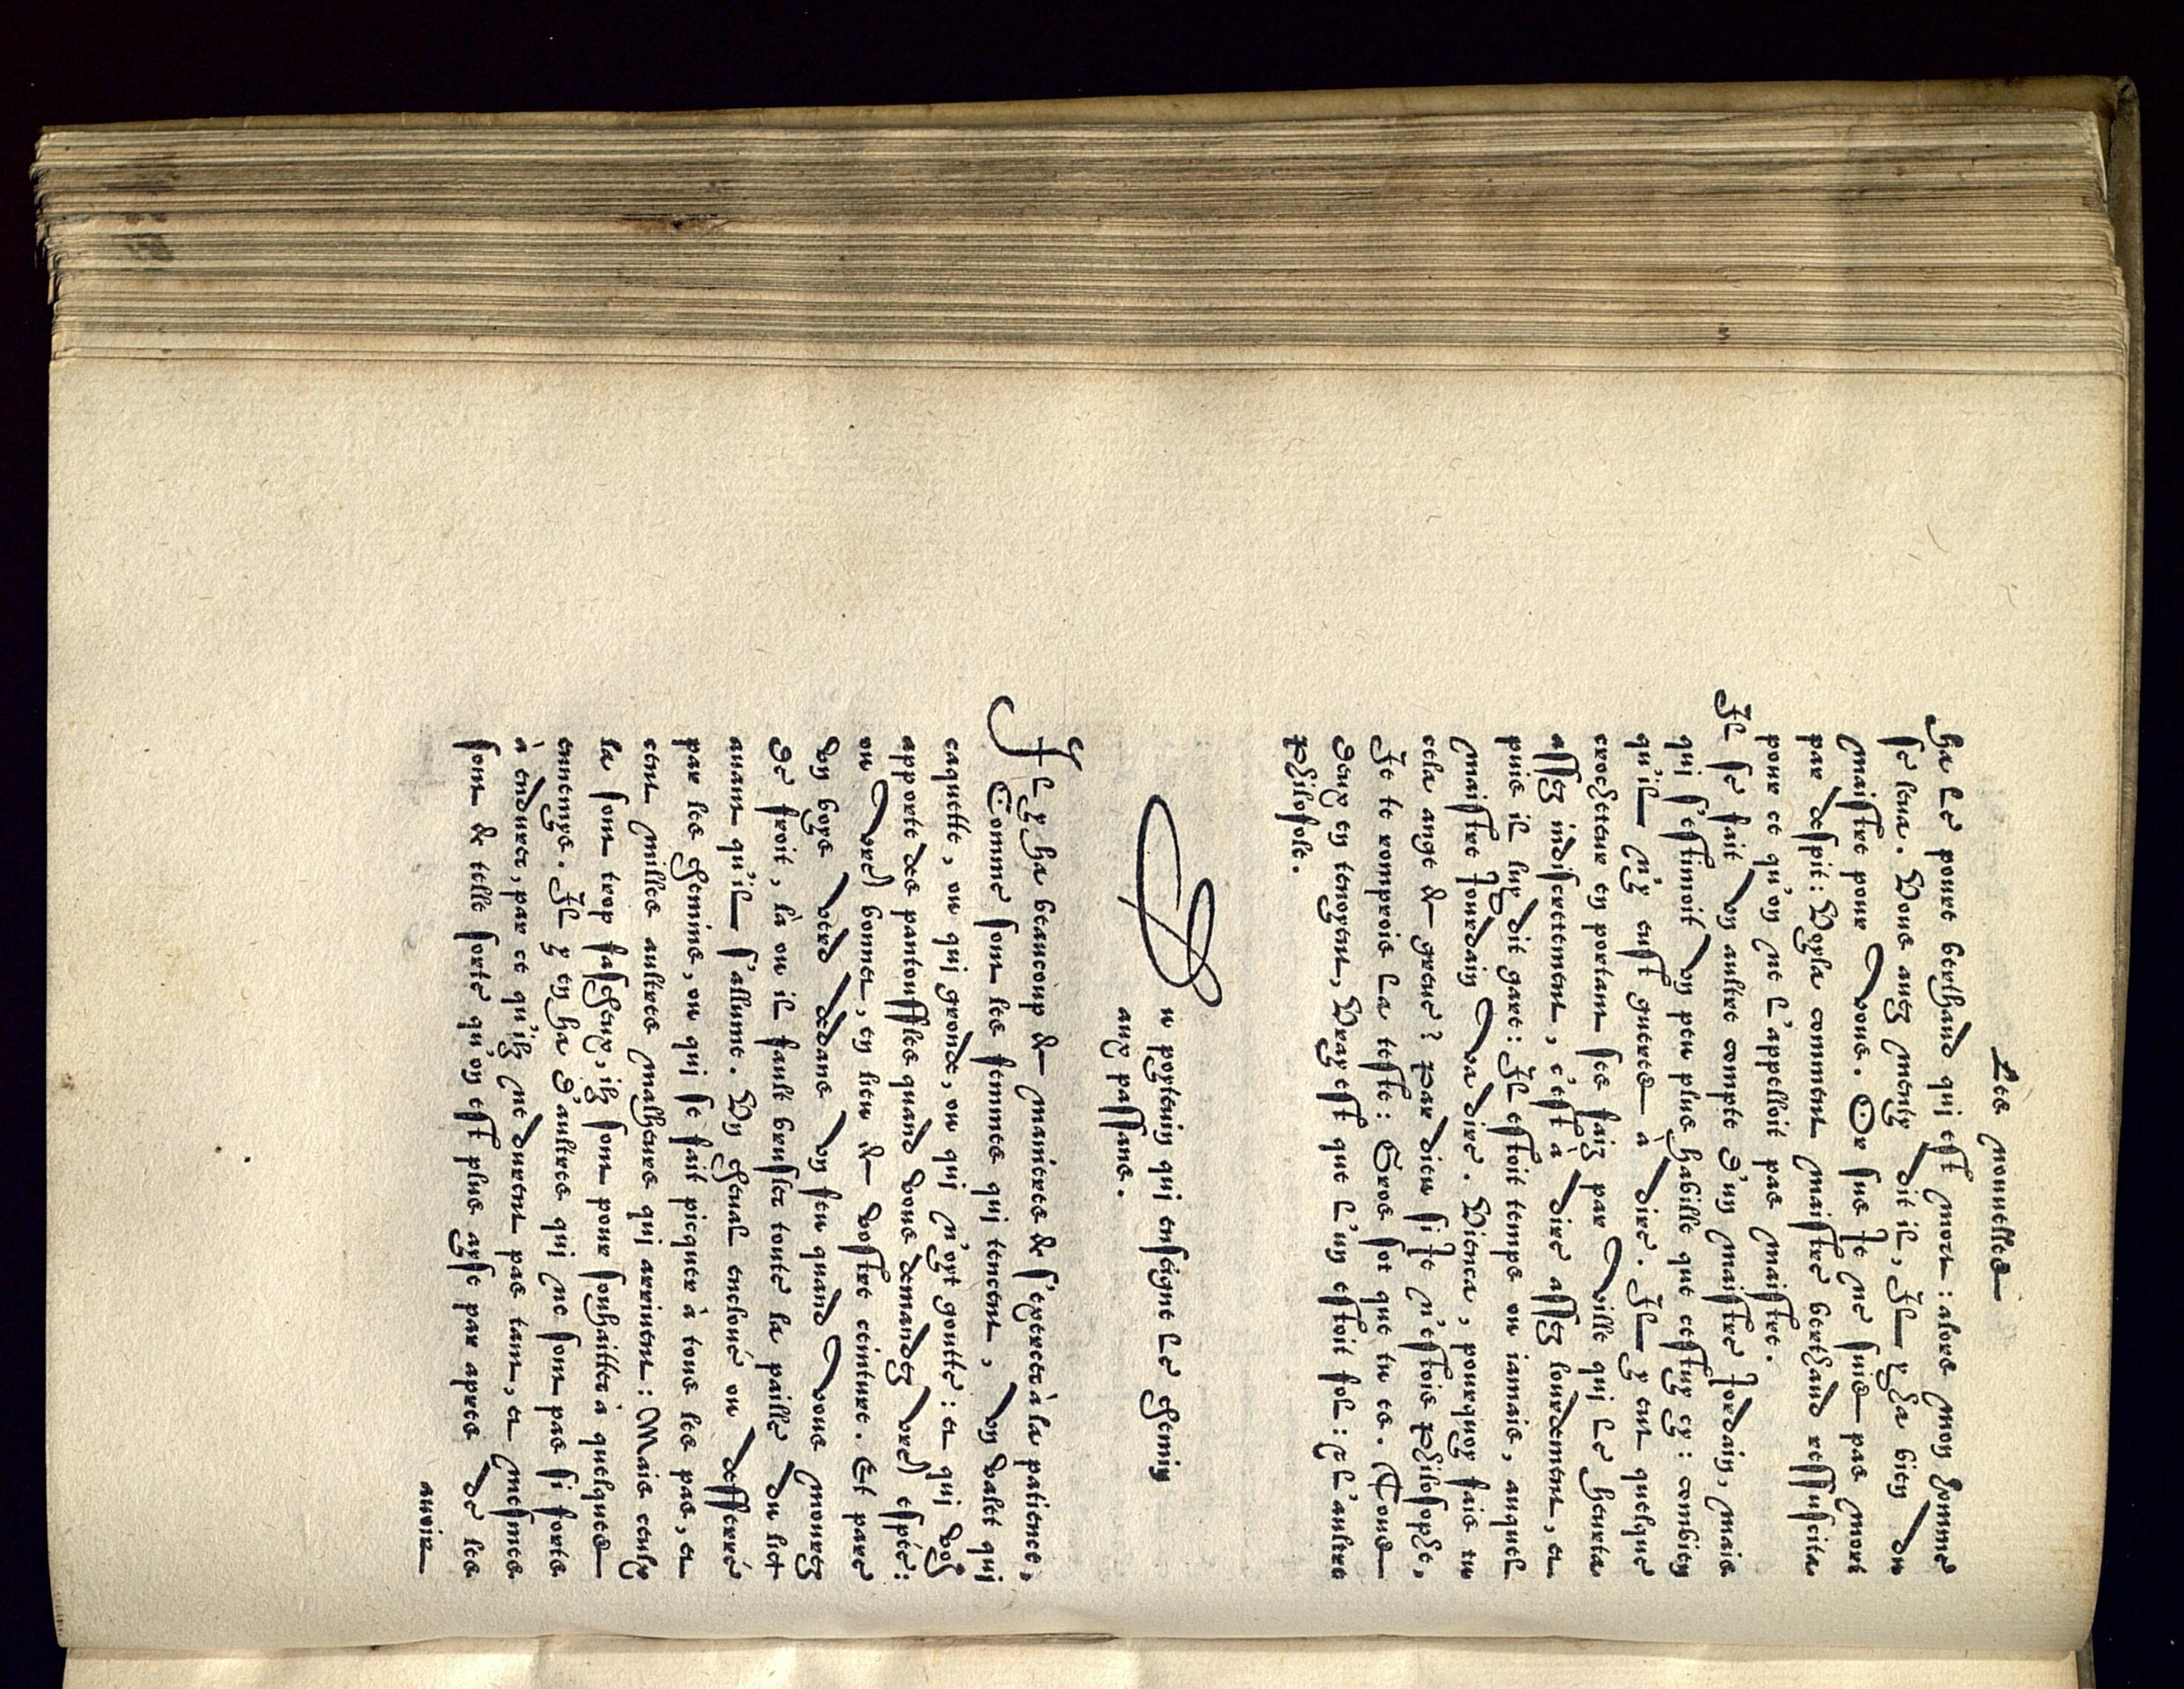 Les nouuelles
ha le poure berthaud qui est mort: alors mon homme
se leua. Vous auez menty dit il, Il y ha bien du
maistre pour vous. Or sus Je ne suis pas mort
par despit: Voyla comment maistre berthaud ressuscita
pour ce qu'on ne l'appelloit pas maistre.
Il se fait vn aultre compte d'un maistre Jordain, mais
qui s'estimoit vn peu plus habille que cestuy cy: combien
qu'il n'y eust gueres à dire. Il y eut quelque
crocheteur en portant ses faiz par ville qui le heurta
assez indiscretement, c'est à dire assez lourdement, et
puis il luy dit gare: Il estoit temps ou iamais, auquel
maistre Jourdain va dire. Vienca, pourquoy fais tu
cela ange de greue? par dieu si Je n'estois philosophe,
Je te romprois la teste: Gros sot que tu es. Tous
deux en tenoyent, Vray est que l'un estoit fol: & l'aultre
philosofole.
Du poytevin qui enseigne le chemin
aux passans.
Il y ha beaucoup de manieres de s'exercer à la patience,
Comme sont les femmes qui tencent, vn valet qui
caquette, ou qui gronde, ou qui n'oyt goutte: et qui voꝰ
apporte des pantouffles quand vous demandez vre) espée:
ou vre) bonnet, en lieu de vostre ceinture. Et pare
vn boys verd dedans vn feu quand vous mourez
de froit, là ou il fault brusler toute la paille du lict
auant qu'il s'allume. Vn cheual encloué ou defferré
par les chemins, ou qui se fait picquer à tous les pas, et
cent milles aultres malheurs qui arriuent: Mais ceulx
la sont trop fascheux, ilz sont pour souhaitter a quelques
ennemys. Il y en ha d'aultres qui ne sont pas si forts
à endurer, par ce qu'ilz ne durent pas tant, et mesmes
sont de telle sorte qu'on est plus ayse par apres de les
auoir